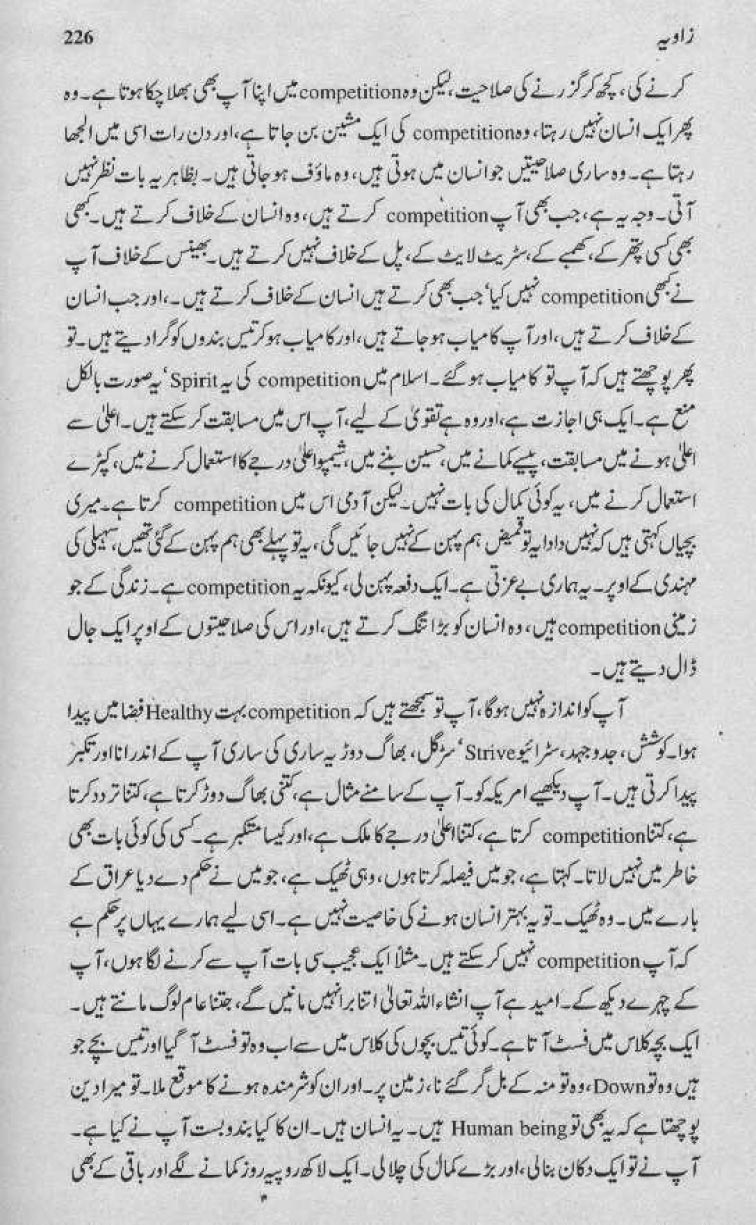 زاویہ
226
کرنے کی، کچھ کر گزرنے کی صلاحیت، لیکن وہ competition میں اپنا آپ بھی بھلا چکا ہوتا ہے۔ وہ
پھر ایک انسان نہیں رہتا، وہ competition کی ایک مشین بن جاتا ہے، اور دن رات اسی میں الجھا
رہتا ہے۔ وہ ساری صلاحیتیں جو انسان میں ہوتی ہیں، وہ ماؤف ہو جاتی ہیں۔ بظاہر یہ بات نظر نہیں
آتی۔ وجہ یہ ہے، جب بھی آپ competition کرتے ہیں، وہ انسان کے خلاف کرتے ہیں۔ کبھی
بھی کسی پتھر کے، کھمبے کے، سٹریٹ لائٹ کے، پل کے خلاف نہیں کرتے ہیں۔ بھینس کے خلاف آپ
نے کبھی competition نہیں کیا‘ جب بھی کرتے ہیں انسان کے خلاف کرتے ہیں۔، اور جب انسان
کے خلاف کرتے ہیں، اور آپ کامیاب ہو جاتے ہیں، اور کامیاب ہو کر تیس بندوں کو گرا دیتے ہیں۔ تو
پھر پوچھتے ہیں کہ آپ تو کامیاب ہو گئے۔ اسلام میں competition کی یہ Spirit‘ یہ صورت بالکل
منع ہے۔ ایک ہی اجازت ہے، اور وہ ہے تقویٰ کے لیے، آپ اس میں مسابقت کر سکتے ہیں۔ اعلیٰ سے
اعلیٰ ہونے میں مسابقت، پیسے کمانے میں، حسین بننے میں، شیمپو اعلیٰ درجے کا استعمال کرنے میں، کپڑے
استعمال کرنے میں، یہ کوئی کمال کی بات نہیں۔ لیکن آدمی اس میں competition کرتا ہے۔ میری
بچیاں کہتی ہیں کہ نہیں دادا یہ تو قمیض ہم پہن کے نہیں جائیں گی، یہ تو پہلے بھی ہم پہن کے گئی تھیں، سہیلی کی
مہندی کے اوپر۔ یہ ہماری بے عزتی ہے۔ ایک دفعہ پہن لی، کیونکہ یہ competition ہے۔ زندگی کے جو
زمینی competition ہیں، وہ انسان کو بڑا تنگ کرتے ہیں، اور اس کی صلاحیتوں کے اوپر ایک جال
ڈال دیتے ہیں۔
آپ کو اندازہ نہیں ہوگا، آپ تو سمجھتے ہیں کہ competition بہت Healthy فضا میں پیدا
ہوا۔ کوشش، جدوجہد، سٹرائیو Strive‘ سٹرگل، بھاگ دوڑ یہ ساری کی ساری آپ کے اندر انا اور تکبر
پیدا کرتی ہیں۔ آپ دیکھیے امریکہ کو۔ آپ کے سامنے مثال ہے، کتنی بھاگ دوڑ کرتا ہے، کتنا تردد کرتا
ہے، کتنا competition کرتا ہے، کتنا اعلیٰ درجے کا ملک ہے، اور کیسا متکبر ہے۔ کسی کی کوئی بات بھی
خاطر میں نہیں لاتا۔ کہتا ہے، جو میں فیصلہ کرتا ہوں، وہی ٹھیک ہے، جو میں نے حکم دے دیا عراق کے
بارے میں۔ وہ ٹھیک۔ تو یہ بہتر انسان ہونے کی خاصیت نہیں ہے۔ اسی لیے ہمارے یہاں پر حکم ہے
کہ آپ competition نہیں کر سکتے ہیں۔ مثلاً ایک عجیب سی بات آپ سے کرنے لگا ہوں، آپ
کے چہرے دیکھ کے۔ امید ہے آپ انشاء اللہ تعالیٰ اتنا برا نہیں مانیں گے، جتنا عام لوگ مانتے ہیں۔
ایک بچہ کلاس میں فسٹ آتا ہے۔ کوئی تیس بچوں کی کلاس میں سے اب وہ تو فسٹ آ گیا اور تیس بچے جو
ہیں وہ تو Down، وہ تو منہ کے بل گر گئے نا، زمین پر۔ اور ان کو شرمندہ ہونے کا موقع ملا۔ تو میرا دین
پوچھتا ہے کہ یہ بھی تو Human being ہیں۔ یہ انسان ہیں۔ ان کا کیا بندوبست آپ نے کیا ہے۔
آپ نے تو ایک دکان بنا لی، اور بڑے کمال کی چلا لی۔ ایک لاکھ روپیہ روز کمانے لگے اور باقی کے بھی